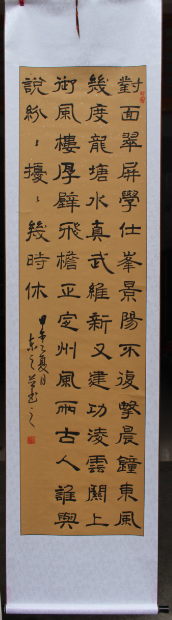 對面翠屏學仕峯景陽不復擊晨鐘東風
幾度龍塘水真武維新又建功凌雲闕上
御風樓厚壁飛檐正定州風雨古人誰與
說紛〻擾〻幾時休
甲午之夏月